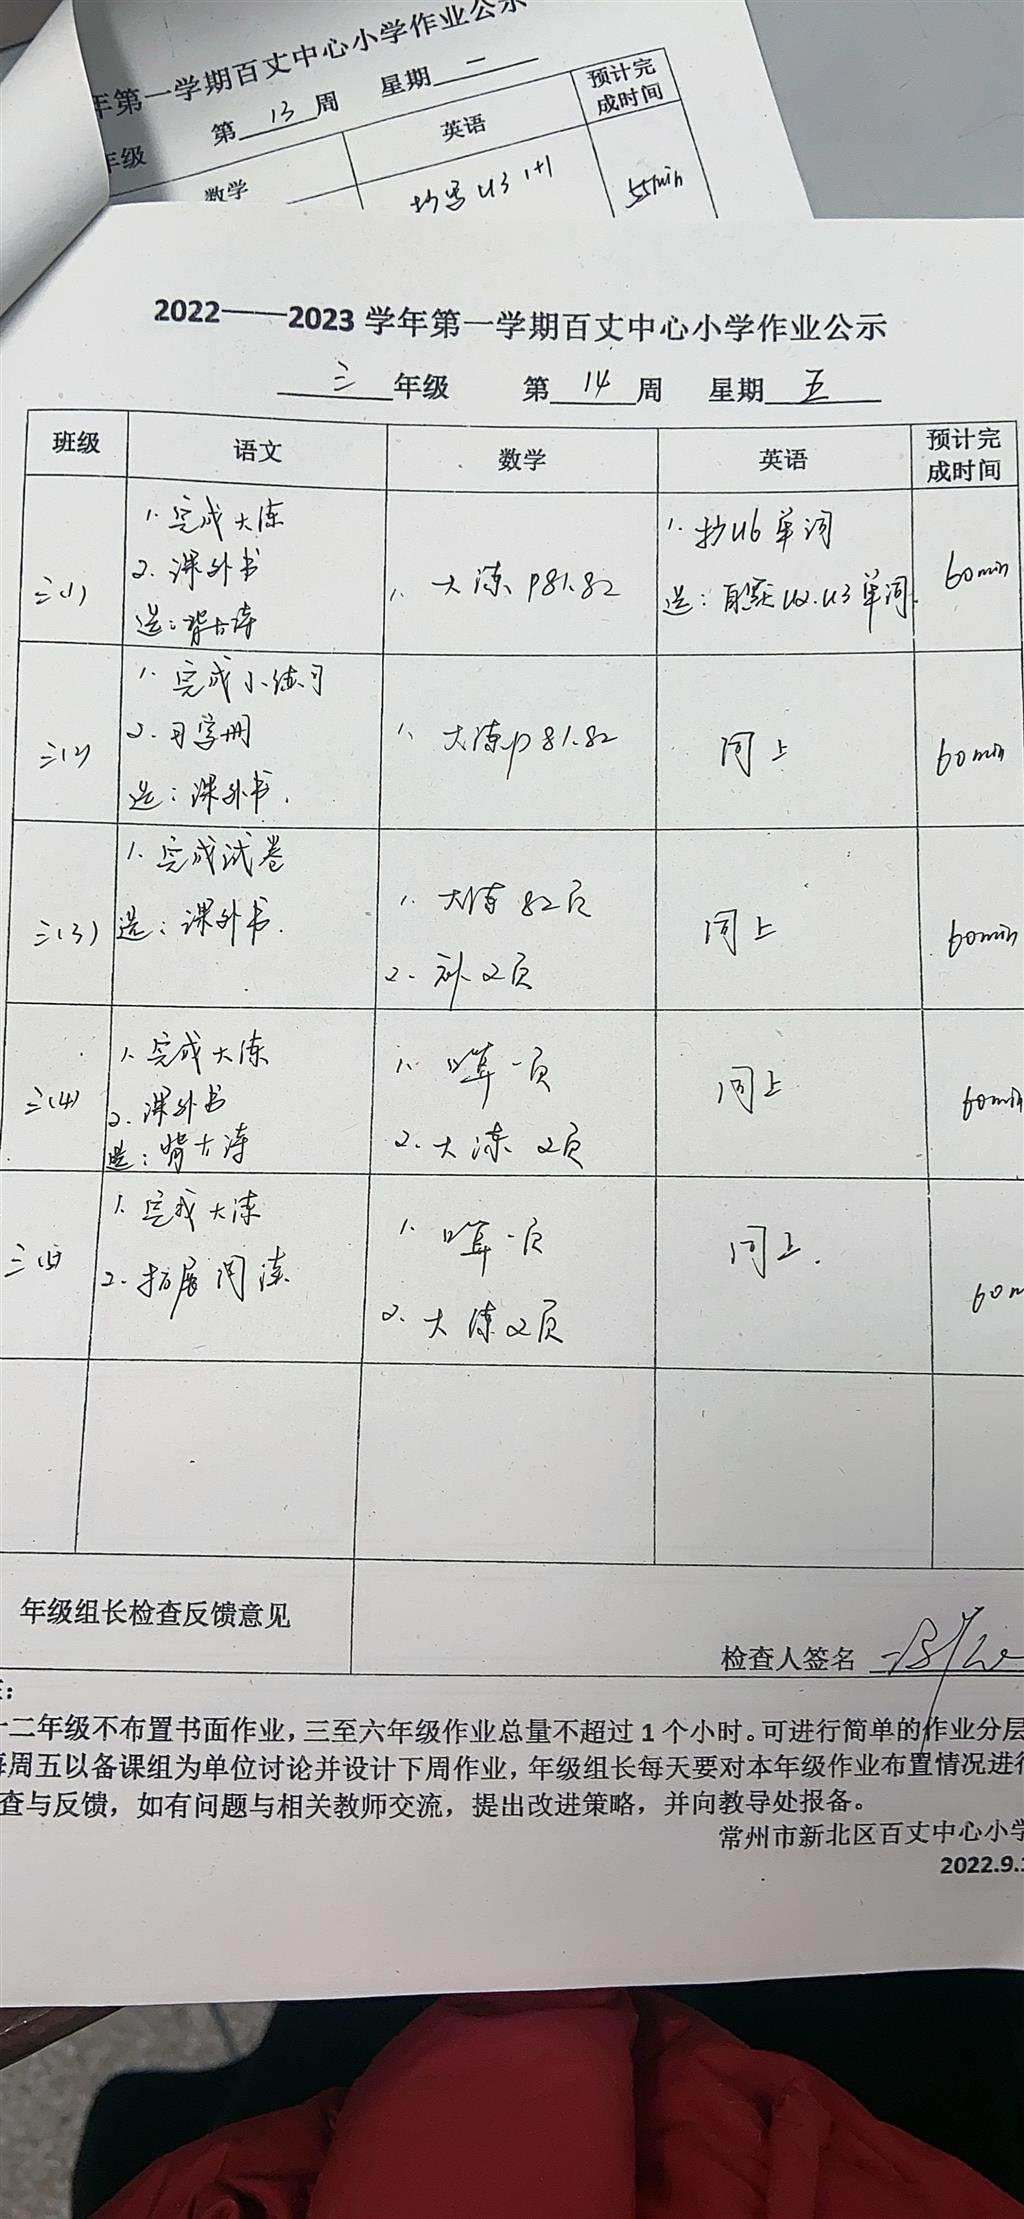 年第一学期百丈中心小学作业公示
年级 第 13 周 星期 二
数学 英语 预计完成时间
抄写 U3 1+1 55min
2022——2023 学年第一学期百丈中心小学作业公示
三 年级 第 14 周 星期 五
班级 语文 数学 英语 预计完成时间
三(1)
1. 完成大练
2. 课外书
选:背古诗
1. 大练 P81.82
1. 抄U6单词
选:自默U2.U3单词.
60min
三(2)
1. 完成小练习
2. 习字册
选:课外书.
1. 大练P81.82
同上
60min
三(3)
1. 完成试卷
选:课外书.
1. 大练 82页
2. 补 2页
同上
60min
三(4)
1. 完成大练
2. 课外书
选:背古诗
1. 口算一页
2. 大练 2页
同上
60min
三(5)
1. 完成大练
2. 拓展阅读
1. 口算一页
2. 大练2页
同上.
60m
年级组长检查反馈意见
检查人签名
:
一二年级不布置书面作业，三至六年级作业总量不超过 1 个小时。可进行简单的作业分层
每周五以备课组为单位讨论并设计下周作业，年级组长每天要对本年级作业布置情况进行
查与反馈，如有问题与相关教师交流，提出改进策略，并向教导处报备。
常州市新北区百丈中心小学
2022.9.1